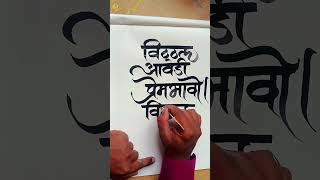 विठ्ठल
आवडी
प्रेमभावो।